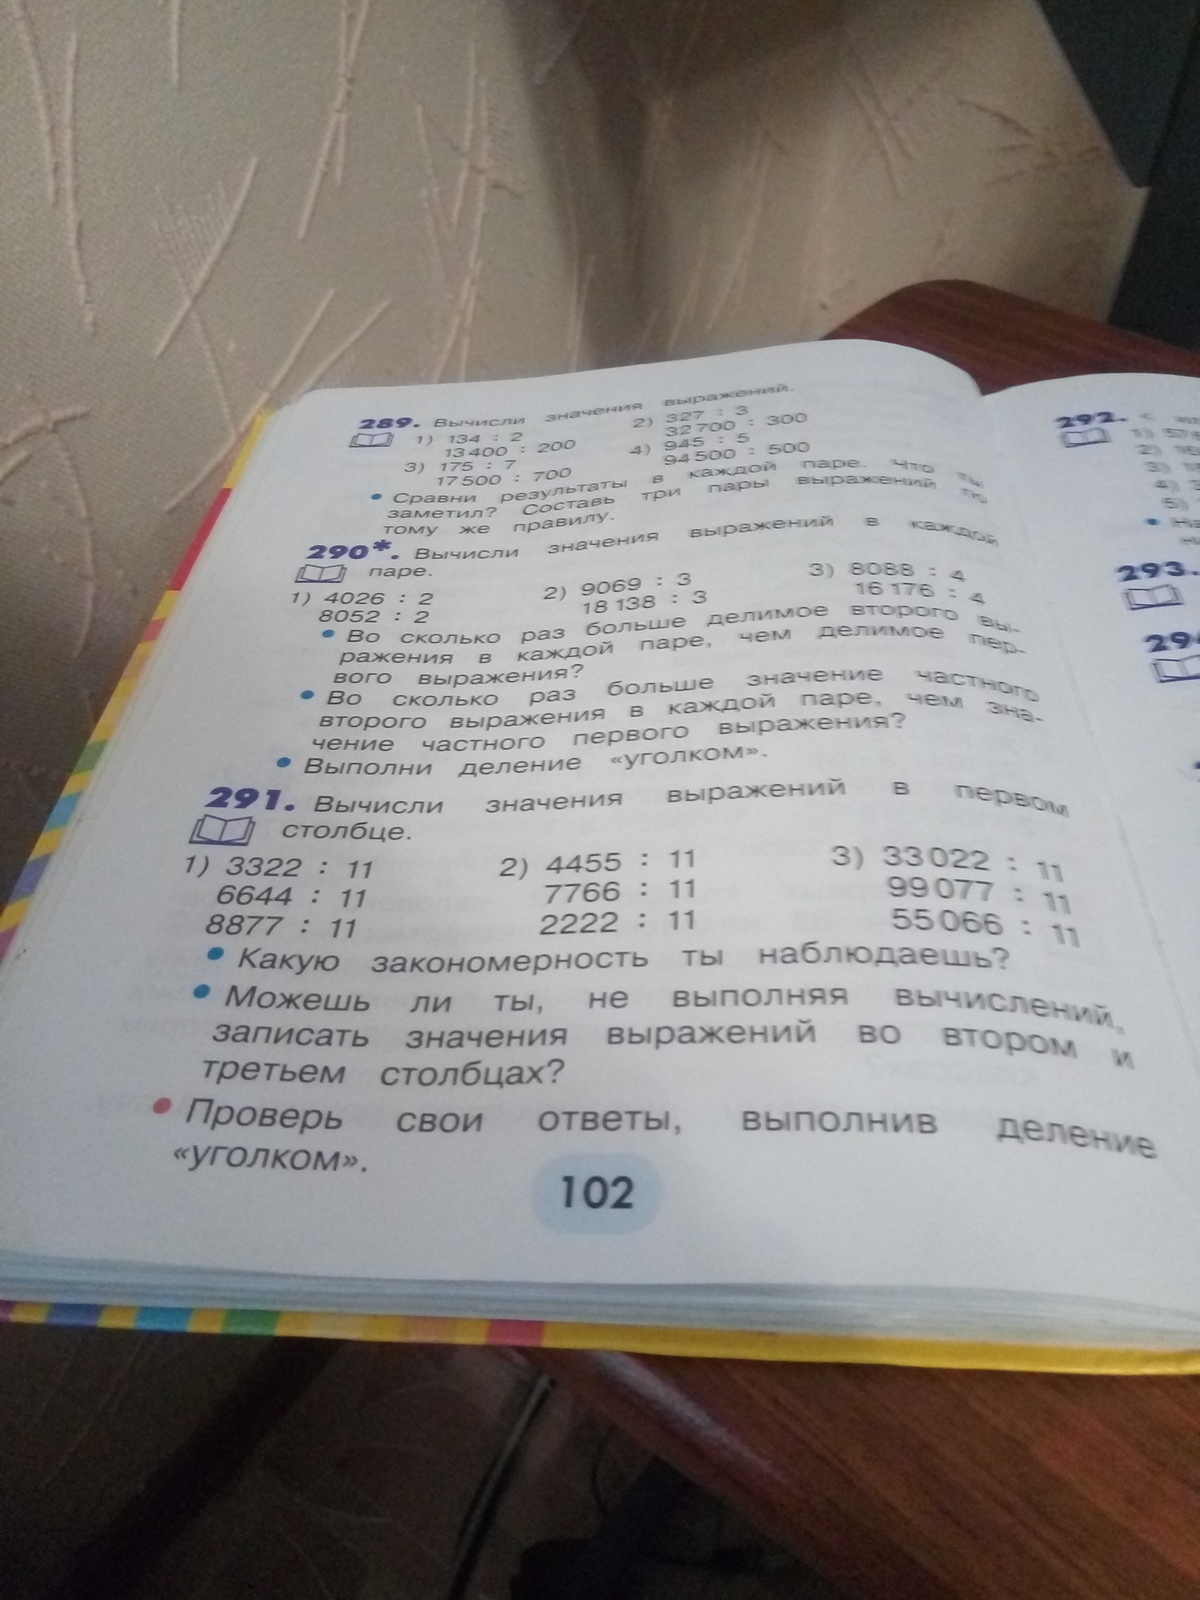 289. Вычисли значения выражений.
1) 134 : 2 2) 327 : 3
13 400 : 200 32 700 : 300
3) 175 : 7 4) 945 : 5
17 500 : 700 94 500 : 500
• Сравни результаты в каждой паре. Что ты
заметил? Составь три пары выражений по
тому же правилу.
290*. Вычисли значения выражений в каждой
паре.
1) 4026 : 2 2) 9069 : 3 3) 8088 : 4
8052 : 2 18 138 : 3 16 176 : 4
• Во сколько раз больше делимое второго вы-
ражения в каждой паре, чем делимое пер-
вого выражения?
• Во сколько раз больше значение частного
второго выражения в каждой паре, чем зна-
чение частного первого выражения?
• Выполни деление «уголком».
291. Вычисли значения выражений в первом
столбце.
1) 3322 : 11 2) 4455 : 11 3) 33 022 : 11
6644 : 11 7766 : 11 99 077 : 11
8877 : 11 2222 : 11 55 066 : 11
• Какую закономерность ты наблюдаешь?
• Можешь ли ты, не выполняя вычислений,
записать значения выражений во втором и
третьем столбцах?
• Проверь свои ответы, выполнив деление
«уголком».
102
292.
1)
2)
3)
4)
5)
293.